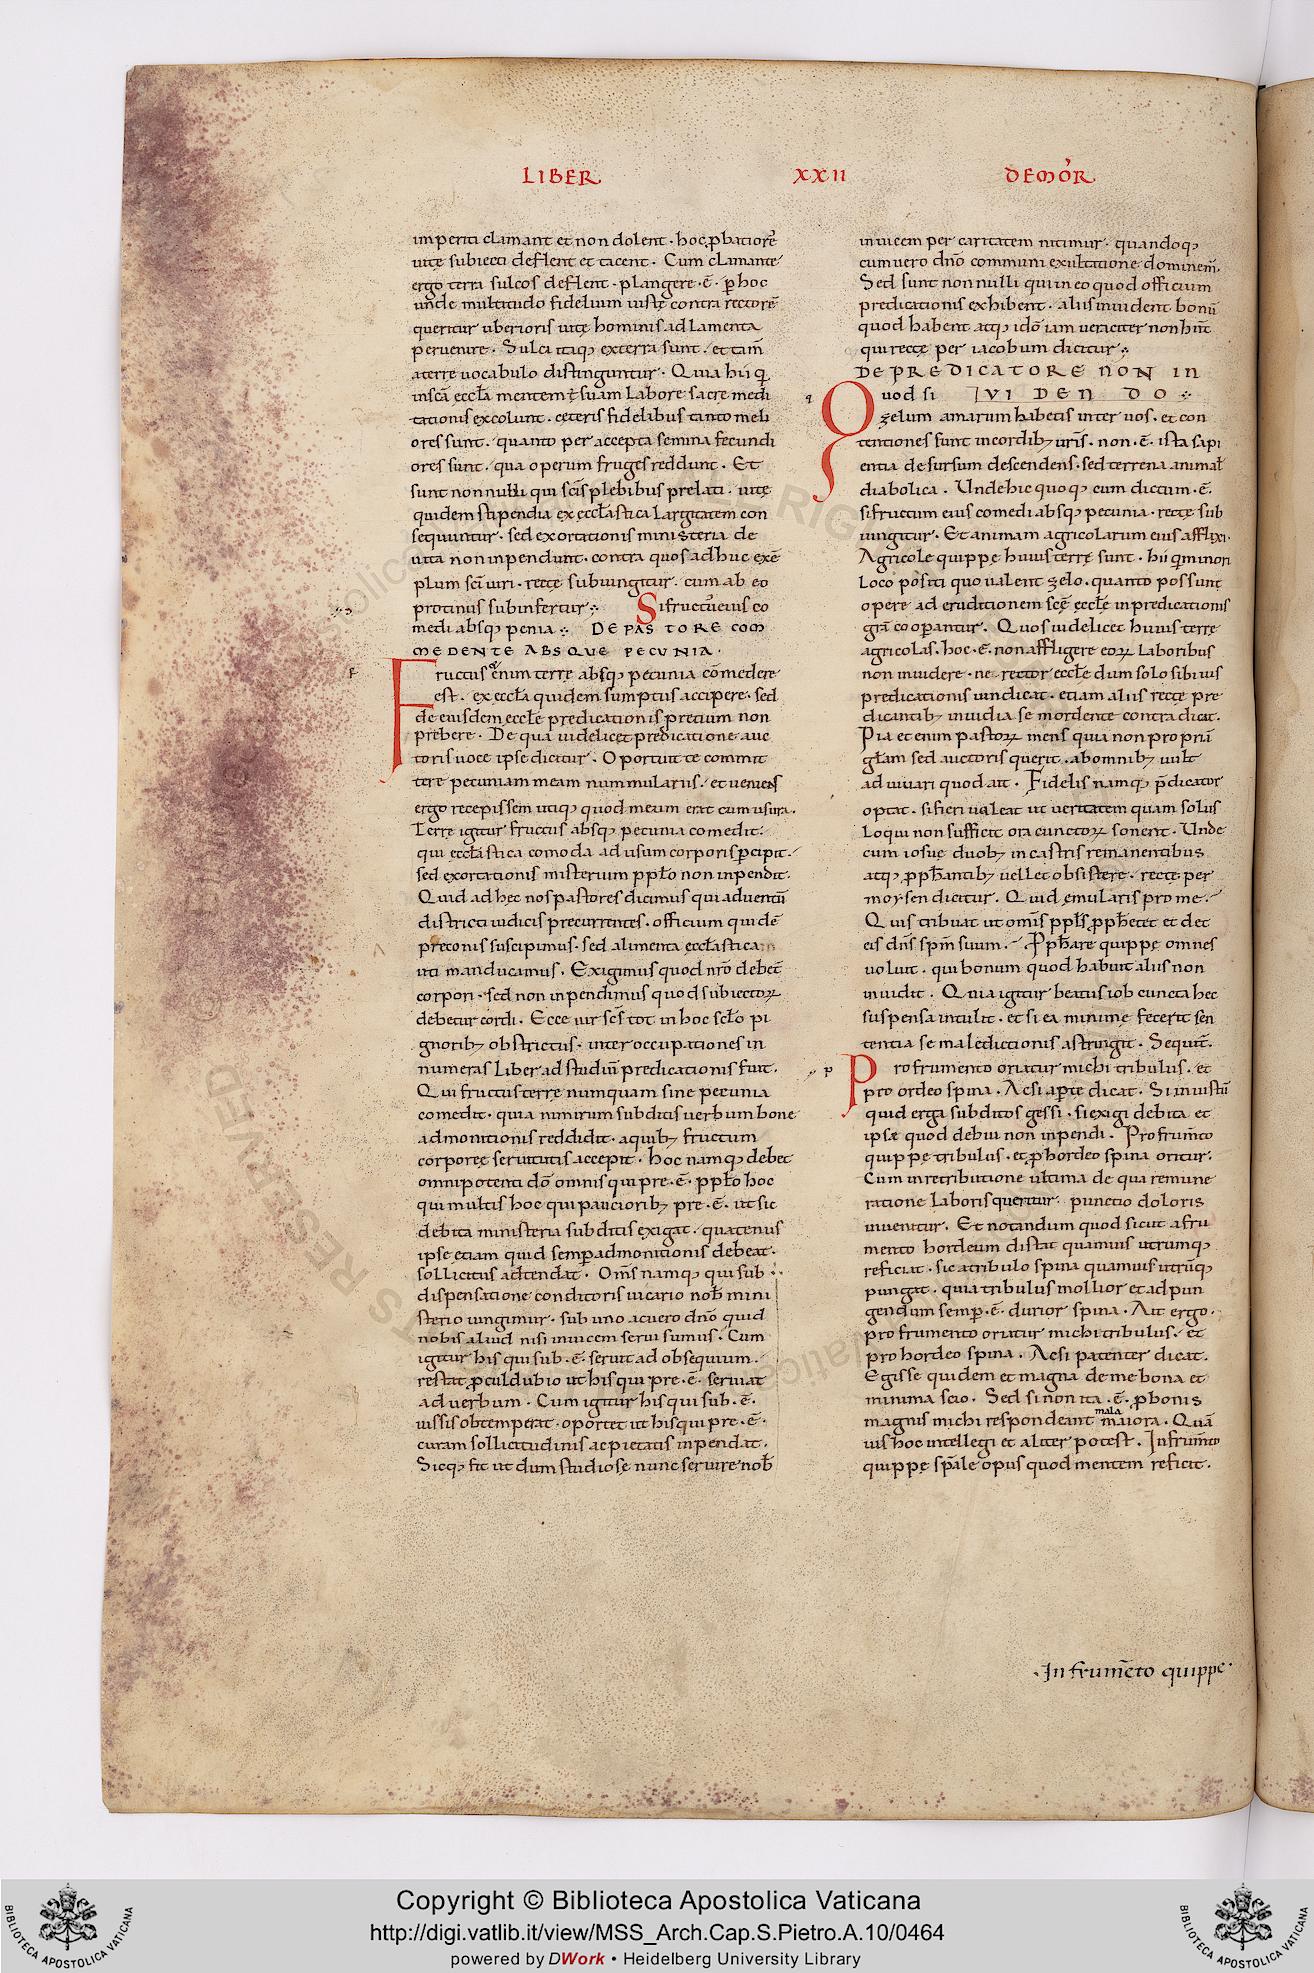 LIBER XXII DEMOR̄
imperiti clamant et non dolent · hoc ꝓbatiorẹ̄
uitę subiecti deflent et tacent · Cum clamante
ergo terra sulcos deflent · plangere · ē · ꝑ hoc
unde multitudo fidelium iuste contra rectorē
queritur uberioris uitę hominis ad lamenta
peruenire · Sulci itaqꝫ ex terra sunt · et tam̄
a terrę uocabulo distinguntur · Quia hii q̣
in scā eccła mentem suam labore sacrę medi
tationis excolunt · ceteris fidelibus tanto meli
ores sunt · quanto per accepta semina fecundi
ores sunt · qua operum fruges reddunt · Et
sunt non nulli qui sc̄is plebibus prelati · uitę
quidem stipendia ex eccłastica largitatem con
sequuntur · sed exortationis ministeria de
uita non inpendunt · contra quos adhuc exē
plum sc̄i uiri · recte subiungitur · cum ab eo
protinus subinfertur · Si fructus̄ eius co
medi absqꝫ penia · DE PASTORE COM
MEDENTE ABSQUE PECUNIA ·
Fructus enim terrę absqꝫ pecunia cōmedere
est · ex eccła quidem sumptus accipere · sed
de eiusdem eccłe predicationis pretium non
prebere · De qua uidelicet predicatione auc
toris uoce ipse dicitur · Oportuit te commit
tere pecuniam meam nummulariis · et ueniens
ergo recepissem utiqꝫ quod meum erat cum usura ·
Terrę igitur fructus absqꝫ pecunia comedit
qui eccłastica comoda ad usum corporis ꝑcipit ·
sed exortationis misterium ppło non inpendit ·
Quid ad hec nos pastores dicimus qui aduentū
districti iudicis precurrentes · officium quidē
preconis suscipimus · sed alimenta eccłastica
uti manducamus · Exigimus quod nr̄o debet̄
corpori · sed non inpendimus quod subiectoꝝ
debetur cordi · Ecce uir sc̄s tot in hoc scło pi
gnoribꝫ obstrictus · inter occupationes in
numeras liber ad studiū predicationis fuit ·
Qui fructus terrę numquam sine pecunia
comedit · quia nimirum subditis uerbum bone
admonitionis reddidit · a quibꝫ fructum
corporeę seruitutis accepit · hoc namqꝫ debet
omnipotenti dō omnis qui pre · ē · ppło hoc
qui multis hoc qui paucioribꝫ pre · ē · ut sic
debita ministeria subditis exigat · quatenus
ipse etiam quid semꝑ admonitionis debeat ·
sollicitus adtendat · Om̄s namqꝫ qui sub
dispensatione conditoris uicario nob̄ mini
sterio iungimur · sub uno ac uero dn̄o quid
nobis aliud nisi inuicem serui sumus · Cum
igitur his qui sub · ē · seruit ad obsequium ·
restat ꝓculdubio ut his qui pre · ē · seruiat
ad uerbum · Cum igitur his qui sub · ē ·
iussis obtemperat · oportet ut his qui pre · ē ·
curam sollicitudinis ac pietatis inpendat ·
Sicqꝫ fit ut dum studiose nunc seruire nob̄
inuicem per caritatem nitimur · quandoqꝫ
cum uero dn̄o communi exultatione dominem̄ ·
Sed sunt non nulli qui in eo quod officium
predicationis exhibent · aliis inuident bonū
quod habent atqꝫ idō iam ueraciter non hn̄t
qui recte per iacobum dicitur ·
DE PREDICATORE NON IN
Quod si IVIDENDO ·
zelum amarum habetis inter uos · et con
tentiones sunt in cordibꝫ ur̄is · non · ē · ista sapi
entia de sursum descendens · sed terrena animał
diabolica · Unde hic quoqꝫ cum dictum · ē ·
si fructum eius comedi absqꝫ pecunia · recte sub
iungitur · Et animam agricolarum eius afflixi ·
Agricolę quippe huius terrę sunt · hii q minori
loco positi quo ualent zelo · quanto possunt
opere ad eruditionem scę eccłę in predicationis
grā cooꝑantur · Quos uidelicet huius terrę
agricolas · hoc · ē · non affligere eoꝝ laboribus
non inuidere · ne rector eccłe dum solo sibi ius
predicationis uindicat · etiam aliis recte pre
dicantibꝫ inuidia se mordente contradicat ·
Pia et enim pastoꝝ mens quia non propriā
głam sed auctoris querit · ab omnibꝫ uult
adiuuari quod ait · Fidelis namqꝫ p̄dicator
optat · si fieri ualeat ut ueritatem quam solus
loqui non sufficit ora cunctoꝝ sonent · Unde
cum iosue duobꝫ in castris remanentibus
atqꝫ ꝓph̄antibꝫ uellet obsistere · recte per
moysen dicitur · Quid emularis pro me ·
Quis tribuat ut omis ppłs ꝓph̄etet et det
eis dn̄s sp̄m suum · Pph̄are quippe omnes
uoluit · qui bonum quod habuit aliis non
inuidit · Quia igitur beatus iob cuncta hec
suspensa intulit · et si ea minime fecerit sen
tentia se maledictionis astringit · Sequit̄ ·
Pro frumento oriatur michi tribulus · et
pro ordeo spina · Ac si aꝑte dicat · Si iniustū
quid erga subditos gessi · si exigi debita et
ipse quod debui non inpendi · Pro frum̄to
quippe tribulus · et ꝓ hordeo spina oritur ·
Cum in retributione ultima de qua remune
ratione laboris queritur · punctio doloris
inuenitur · Et notandum quod sicut a fru
mento hordeum distat quamuis utrumqꝫ
reficiat · sic a tribulo spina quamuis utrūqꝫ
pungat · quia tribulus mollior et ad pun
gendum semꝑ · ē · durior spina · Ait ergo ·
pro frumento oriatur michi tribulus · et
pro hordeo spina · Ac si patenter dicat ·
Egisse quidem et magna de me bona et
minima scio · Sed si non ita · ē · ꝓ bonis
mala
magnis michi respondeant maiora · Quā
uis hoc intellegi et aliter potest · In frum̄to
quippe sp̄ale opus quod mentem reficit ·
· In frum̄eto quippe ·
Copyright © Biblioteca Apostolica Vaticana
http://digi.vatlib.it/view/MSS_Arch.Cap.S.Pietro.A.10/0464
powered by DWork • Heidelberg University Library
BIBLIOTECA APOSTOLICA VATICANA
BIBLIOTECA APOSTOLICA VATICANA